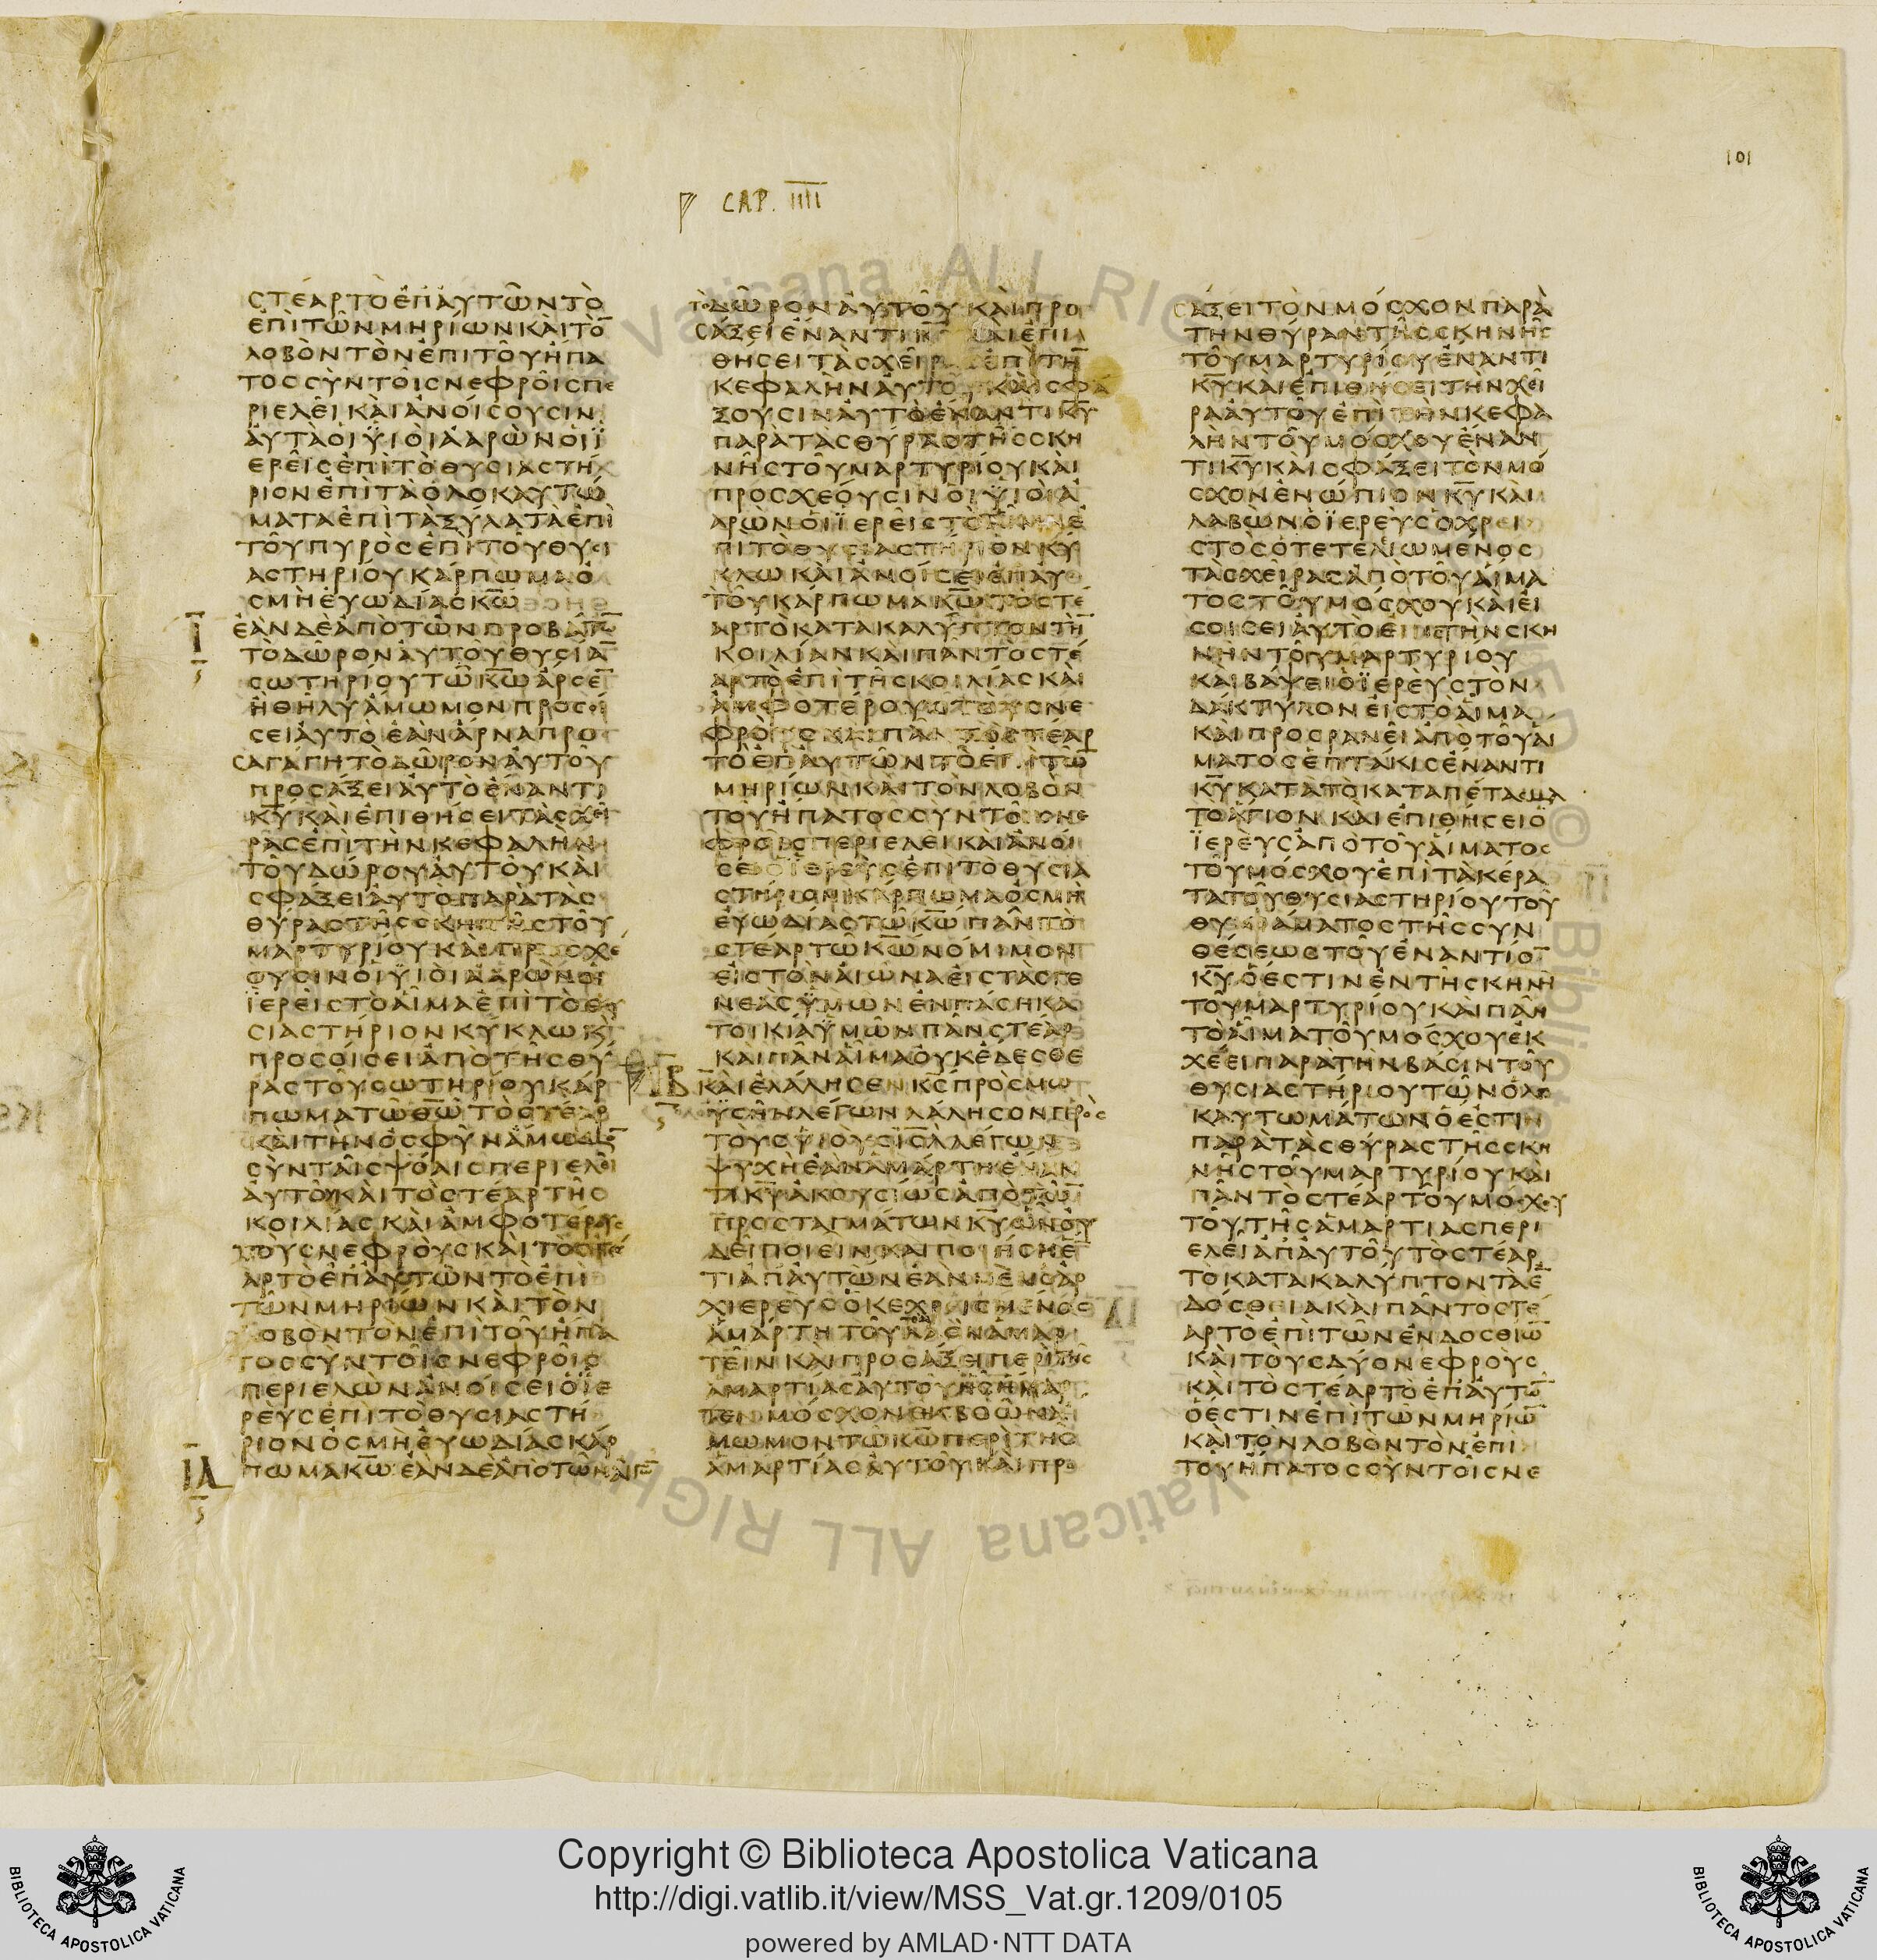 101
CAP. IIII
ϹΤΕΑΡΤΟΕΠΑΥΤΩΝΤΟ
ΕΠΙΤΩΝΜΗΡΙΩΝΚΑΙΤΟ̅
ΛΟΒΟΝΤΟΝΕΠΙΤΟΥΗΠΑ
ΤΟϹϹΥΝΤΟΙϹΝΕΦΡΟΙϹΠΕ
ΡΙΕΛΕΙΚΑΙΑΝΟΙϹΟΥϹΙΝ
ΑΥΤΑΟΙΥΙΟΙΑΑΡΩΝΟΙΪ
ΕΡΕΙϹΕΠΙΤΟΘΥϹΙΑϹΤΗ
ΡΙΟΝΕΠΙΤΑΟΛΟΚΑΥΤΩ
ΜΑΤΑΕΠΙΤΑΞΥΛΑΤΑΕΠΙ
ΤΟΥΠΥΡΟϹΕΠΙΤΟΥΘΥϹΙ
ΑϹΤΗΡΙΟΥΚΑΡΠΩΜΑΟ
ϹΜΗΕΥΩΔΙΑϹΚ̅Ω̅
Ι ΕΑΝΔΕΑΠΟΤΩΝΠΡΟΒΑΤΩ̅
ΤΟΔΩΡΟΝΑΥΤΟΥΘΥϹΙΑ̅
ϹΩΤΗΡΙΟΥΤΩΚ̅Ω̅ΑΡϹΕ̅
ΗΘΗΛΥΑΜΩΜΟΝΠΡΟϹΟΙ
ϹΕΙΑΥΤΟΕΑΝΑΡΝΑΠΡΟ
ϹΑΓΑΓΗΤΟΔΩΡΟΝΑΥΤΟΥ
ΠΡΟϹΑΞΕΙΑΥΤΟΕΝΑΝΤΙ
Κ̅Υ̅ΚΑΙΕΠΙΘΗϹΕΙΤΑϹΧΕΙ
ΡΑϹΕΠΙΤΗΝΚΕΦΑΛΗΝ
ΤΟΥΔΩΡΟΥΑΥΤΟΥΚΑΙ
ϹΦΑΞΕΙΑΥΤΟΠΑΡΑΤΑϹ
ΘΥΡΑϹΤΗϹϹΚΗΝΗϹΤΟΥ
ΜΑΡΤΥΡΙΟΥΚΑΙΠΡΟϹΧΕ
ΟΥϹΙΝΟΙΥΙΟΙΑΑΡΩΝΟΙ
ΪΕΡΕΙϹΤΟΑΙΜΑΕΠΙΤΟΘΥ
ϹΙΑϹΤΗΡΙΟΝΚΥΚΛΩΚΑΙ
ΠΡΟϹΟΙϹΕΙΑΠΟΤΗϹΘΥ
ΡΑϹΤΟΥϹΩΤΗΡΙΟΥΚΑΡ
ΠΩΜΑΤΩΘ̅Ω̅ΤΟϹΤΕΑΡ
ΚΑΙΤΗΝΟϹΦΥΝΑΜΩΜΟ̅
ϹΥΝΤΑΙϹΨΟΑΙϹΠΕΡΙΕΛΕΙ
ΑΥΤΟΚΑΙΤΟϹΤΕΑΡΤΗϹ
ΚΟΙΛΙΑϹΚΑΙΑΜΦΟΤΕΡΟΥϹ
ΤΟΥϹΝΕΦΡΟΥϹΚΑΙΤΟϹΤΕ
ΑΡΤΟΕΠΑΥΤΩΝΤΟΕΠΙ
ΤΩΝΜΗΡΙΩΝΚΑΙΤΟΝ
ΛΟΒΟΝΤΟΝΕΠΙΤΟΥΗΠΑ
ΤΟϹϹΥΝΤΟΙϹΝΕΦΡΟΙϹ
ΠΕΡΙΕΛΩΝΑΝΟΙϹΕΙΟΪΕ
ΡΕΥϹΕΠΙΤΟΘΥϹΙΑϹΤΗ
ΡΙΟΝΟϹΜΗΕΥΩΔΙΑϹΚΑΡ
ΙΑ ΠΩΜΑΚ̅Ω̅ΕΑΝΔΕΑΠΟΤΩΝΑΙΓΩ̅
ΤΟΔΩΡΟΝΑΥΤΟΥΚΑΙΠΡΟ
ϹΑΞΕΙΕΝΑΝΤΙΚ̅Υ̅ΚΑΙΕΠΙ
ΘΗϹΕΙΤΑϹΧΕΙΡΑϹΕΠΙΤΗ̅
ΚΕΦΑΛΗΝΑΥΤΟΥΚΑΙϹΦΑ
ΞΟΥϹΙΝΑΥΤΟΕΝΑΝΤΙΚ̅Υ̅
ΠΑΡΑΤΑϹΘΥΡΑϹΤΗϹϹΚΗ
ΝΗϹΤΟΥΜΑΡΤΥΡΙΟΥΚΑΙ
ΠΡΟϹΧΕΟΥϹΙΝΟΙΥΙΟΙΑ
ΑΡΩΝΟΙΪΕΡΕΙϹΤΟΑΙΜΑΕ
ΠΙΤΟΘΥϹΙΑϹΤΗΡΙΟΝΚΥ
ΚΛΩΚΑΙΑΝΟΙϹΕΙΕΠΑΥ
ΤΟΥΚΑΡΠΩΜΑΚ̅Ω̅ΤΟϹΤΕ
ΑΡΤΟΚΑΤΑΚΑΛΥΠΤΟΝΤΗ̅
ΚΟΙΛΙΑΝΚΑΙΠΑΝΤΟϹΤΕ
ΑΡΤΟΕΠΙΤΗϹΚΟΙΛΙΑϹΚΑΙ
ΑΜΦΟΤΕΡΟΥϹΤΟΥϹΝΕ
ΦΡΟΥϹΚΑΙΠΑΝΤΟϹΤΕΑΡ
ΤΟΕΠΑΥΤΩΝΤΟΕΠΙΤΩ̅
ΜΗΡΙΩΝΚΑΙΤΟΝΛΟΒΟΝ
ΤΟΥΗΠΑΤΟϹϹΥΝΤΟΙϹΝΕ
ΦΡΟΙϹΠΕΡΙΕΛΕΙΚΑΙΑΝΟΙ
ϹΕΙΟΪΕΡΕΥϹΕΠΙΤΟΘΥϹΙΑ
ϹΤΗΡΙΟΝΚΑΡΠΩΜΑΟϹΜΗ
ΕΥΩΔΙΑϹΤΩΚ̅Ω̅ΠΑΝΤΟ
ϹΤΕΑΡΤΩΚ̅Ω̅ΝΟΜΙΜΟΝ
ΕΙϹΤΟΝΑΙΩΝΑΕΙϹΤΑϹΓΕ
ΝΕΑϹΥΜΩΝΕΝΠΑϹΗΚΑ
ΤΟΙΚΙΑΥΜΩΝΠΑΝϹΤΕΑΡ
ΚΑΙΠΑΝΑΙΜΑΟΥΚΕΔΕϹΘΕ
ΙΒ ΚΑΙΕΛΑΛΗϹΕΝΚ̅Ϲ̅ΠΡΟϹΜΩ
ΫϹΗΝΛΕΓΩΝΛΑΛΗϹΟΝΠΡΟϹ
ΤΟΥϹΥΙΟΥϹΙ̅Ϲ̅Λ̅ΛΕΓΩΝ
ΨΥΧΗΕΑΝΑΜΑΡΤΗΕΝΑΝ
ΤΙΚ̅Υ̅ΑΚΟΥϹΙΩϹΑΠΟΤΩ̅
ΠΡΟϹΤΑΓΜΑΤΩΝΚ̅Υ̅ΩΝΟΥ
ΔΕΙΠΟΙΕΙΝΚΑΙΠΟΙΗϹΗΕ̅
ΤΙΑΠΑΥΤΩΝΕΑΝΜΕΝΟΑΡ
ΧΙΕΡΕΥϹΟΚΕΧΡΙϹΜΕΝΟϹ
ΑΜΑΡΤΗΤΟΥΛΑΟΝΑΜΑΡ
ΤΕΙΝΚΑΙΠΡΟϹΑΞΕΙΠΕΡΙΤΗϹ
ΑΜΑΡΤΙΑϹΑΥΤΟΥΗϹΗΜΑΡ
ΤΕΝΜΟϹΧΟΝΕΚΒΟΩΝΑ
ΜΩΜΟΝΤΩΚ̅Ω̅ΠΕΡΙΤΗϹ
ΑΜΑΡΤΙΑϹΑΥΤΟΥΚΑΙΠΡΟ
ϹΑΞΕΙΤΟΝΜΟϹΧΟΝΠΑΡΑ
ΤΗΝΘΥΡΑΝΤΗϹϹΚΗΝΗϹ
ΤΟΥΜΑΡΤΥΡΙΟΥΕΝΑΝΤΙ
Κ̅Υ̅ΚΑΙΕΠΙΘΗϹΕΙΤΗΝΧΕΙ
ΡΑΑΥΤΟΥΕΠΙΤΗΝΚΕΦΑ
ΛΗΝΤΟΥΜΟϹΧΟΥΕΝΑΝ
ΤΙΚ̅Υ̅ΚΑΙϹΦΑΞΕΙΤΟΝΜΟ
ϹΧΟΝΕΝΩΠΙΟΝΚ̅Υ̅ΚΑΙ
ΛΑΒΩΝΟΪΕΡΕΥϹΟΧΡΕΙ
ϹΤΟϹΟΤΕΤΕΛΕΙΩΜΕΝΟϹ
ΤΑϹΧΕΙΡΑϹΑΠΟΤΟΥΑΙΜΑ
ΤΟϹΤΟΥΜΟϹΧΟΥΚΑΙΕΙ
ϹΟΙϹΕΙΑΥΤΟΕΙϹΤΗΝϹΚΗ
ΝΗΝΤΟΥΜΑΡΤΥΡΙΟΥ
ΚΑΙΒΑΨΕΙΟΪΕΡΕΥϹΤΟΝ
ΔΑΚΤΥΛΟΝΕΙϹΤΟΑΙΜΑ
ΚΑΙΠΡΟϹΡΑΝΕΙΑΠΟΤΟΥΑΙ
ΜΑΤΟϹΕΠΤΑΚΙϹΕΝΑΝΤΙ
Κ̅Υ̅ΚΑΤΑΤΟΚΑΤΑΠΕΤΑϹΜΑ
ΤΟΑΓΙΟΝΚΑΙΕΠΙΘΗϹΕΙΟ
ΪΕΡΕΥϹΑΠΟΤΟΥΑΙΜΑΤΟϹ
ΤΟΥΜΟϹΧΟΥΕΠΙΤΑΚΕΡΑ
ΤΑΤΟΥΘΥϹΙΑϹΤΗΡΙΟΥΤΟΥ
ΘΥΜΙΑΜΑΤΟϹΤΗϹϹΥΝ
ΘΕϹΕΩϹΤΟΥΕΝΑΝΤΙΟ̅
Κ̅Υ̅ΟΕϹΤΙΝΕΝΤΗϹΚΗΝΗ
ΤΟΥΜΑΡΤΥΡΙΟΥΚΑΙΠΑΝ
ΤΟΑΙΜΑΤΟΥΜΟϹΧΟΥΕΚ
ΧΕΕΙΠΑΡΑΤΗΝΒΑϹΙΝΤΟΥ
ΘΥϹΙΑϹΤΗΡΙΟΥΤΩΝΟΛΟ
ΚΑΥΤΩΜΑΤΩΝΟΕϹΤΙΝ
ΠΑΡΑΤΑϹΘΥΡΑϹΤΗϹϹΚΗ
ΝΗϹΤΟΥΜΑΡΤΥΡΙΟΥΚΑΙ
ΠΑΝΤΟϹΤΕΑΡΤΟΥΜΟϹΧΟΥ
ΤΟΥΤΗϹΑΜΑΡΤΙΑϹΠΕΡΙ
ΕΛΕΙΑΠΑΥΤΟΥΤΟϹΤΕΑΡ
ΤΟΚΑΤΑΚΑΛΥΠΤΟΝΤΑΕ̅
ΔΟϹΘΕΙΑΚΑΙΠΑΝΤΟϹΤΕ
ΑΡΤΟΕΠΙΤΩΝΕΝΔΟϹΘΙΩ̅
ΚΑΙΤΟΥϹΔΥΟΝΕΦΡΟΥϹ
ΚΑΙΤΟϹΤΕΑΡΤΟΕΠΑΥΤΩ̅
ΟΕϹΤΙΝΕΠΙΤΩΝΜΗΡΙΩ̅
ΚΑΙΤΟΝΛΟΒΟΝΤΟΝΕΠΙ
ΤΟΥΗΠΑΤΟϹϹΥΝΤΟΙϹΝΕ
Copyright © Biblioteca Apostolica Vaticana
http://digi.vatlib.it/view/MSS_Vat.gr.1209/0105
powered by AMLAD·NTT DATA
BIBLIOTECA APOSTOLICA VATICANA
BIBLIOTECA APOSTOLICA VATICANA